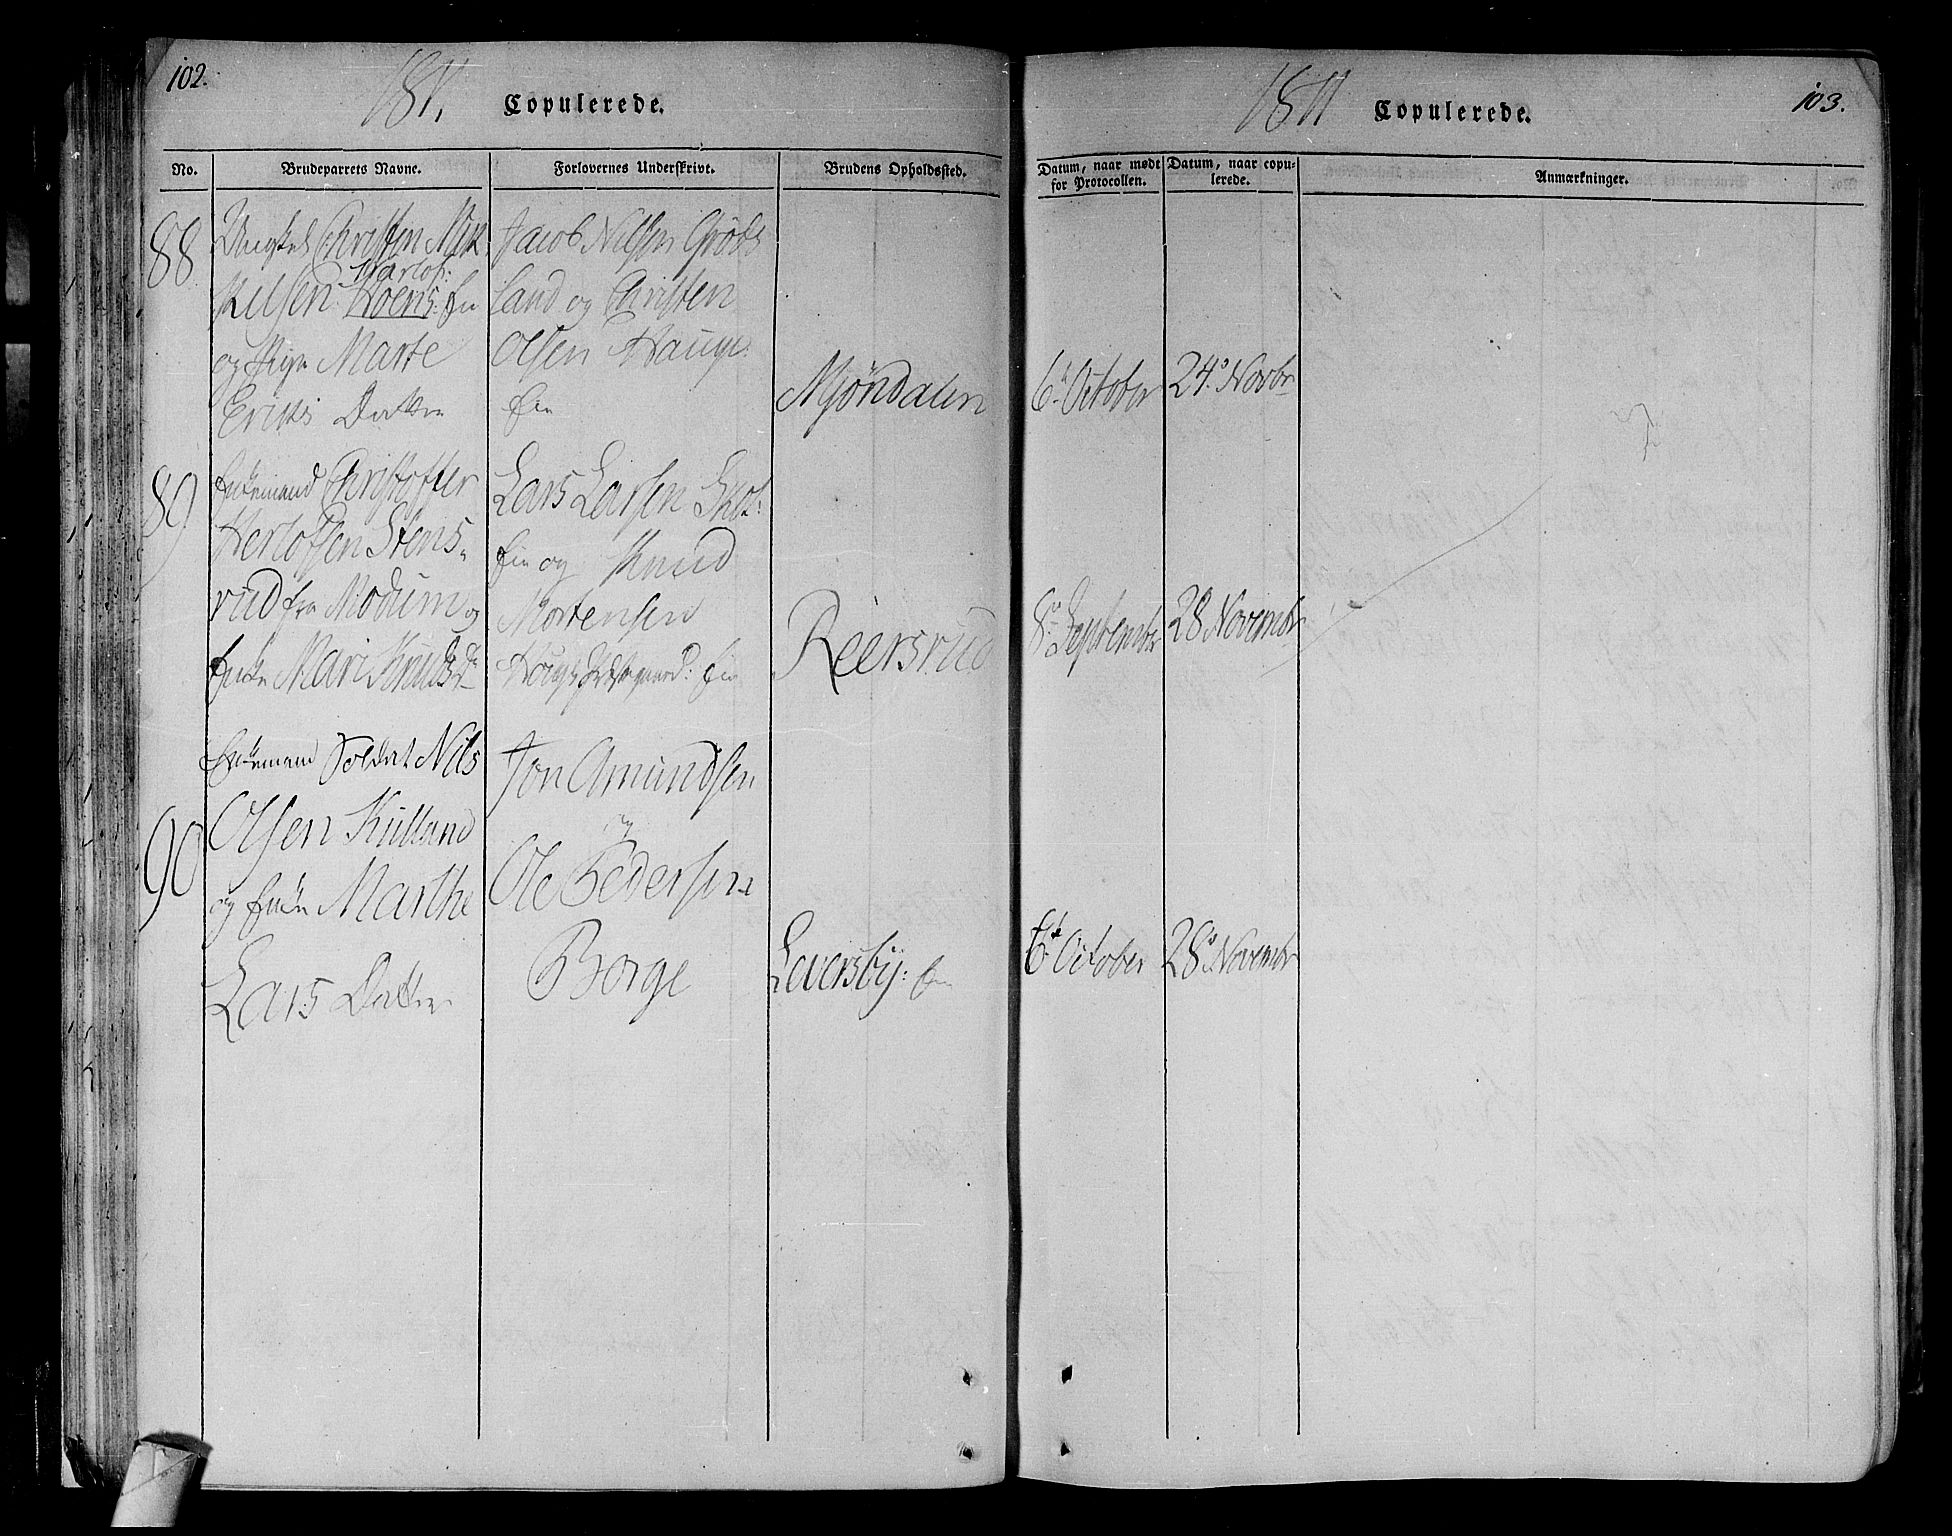 102.
1811.
Copulerede.
No.
Brudeparrets Navne.
Forlovernes Underskrivt.
Brudens Opholdssted.
88
Ungkarl Christen Mik
kelsen
Hoens: Eie
og Pige Marte
Eriks Datter
Jacob Nilsen Grøts
land og Christen
Olsen Hauge
Eie
Mjøndalen
89
Enkemand Christoffer
Herlofsen Stens-
rud fra Modum og
Enke Mari Knuds
Lars Larsen Skot:
Eie og Knud
Mortensen
Eie
Reersrud
90
Enkemand Soldat Nils
Olsen Killand
og Enke Marthe
Lars Datter
Jon Amundsen
og
Ole Pedersen
Borge
Leversby: Eie
1811
Copulerede.
103.
Datum, naar mødt for Protocollen.
Datum, naar copu-
lerede.
Anmærkninger.
6. October
24. Novbr
8. September
28 Novembr
6. October
28. Novembr